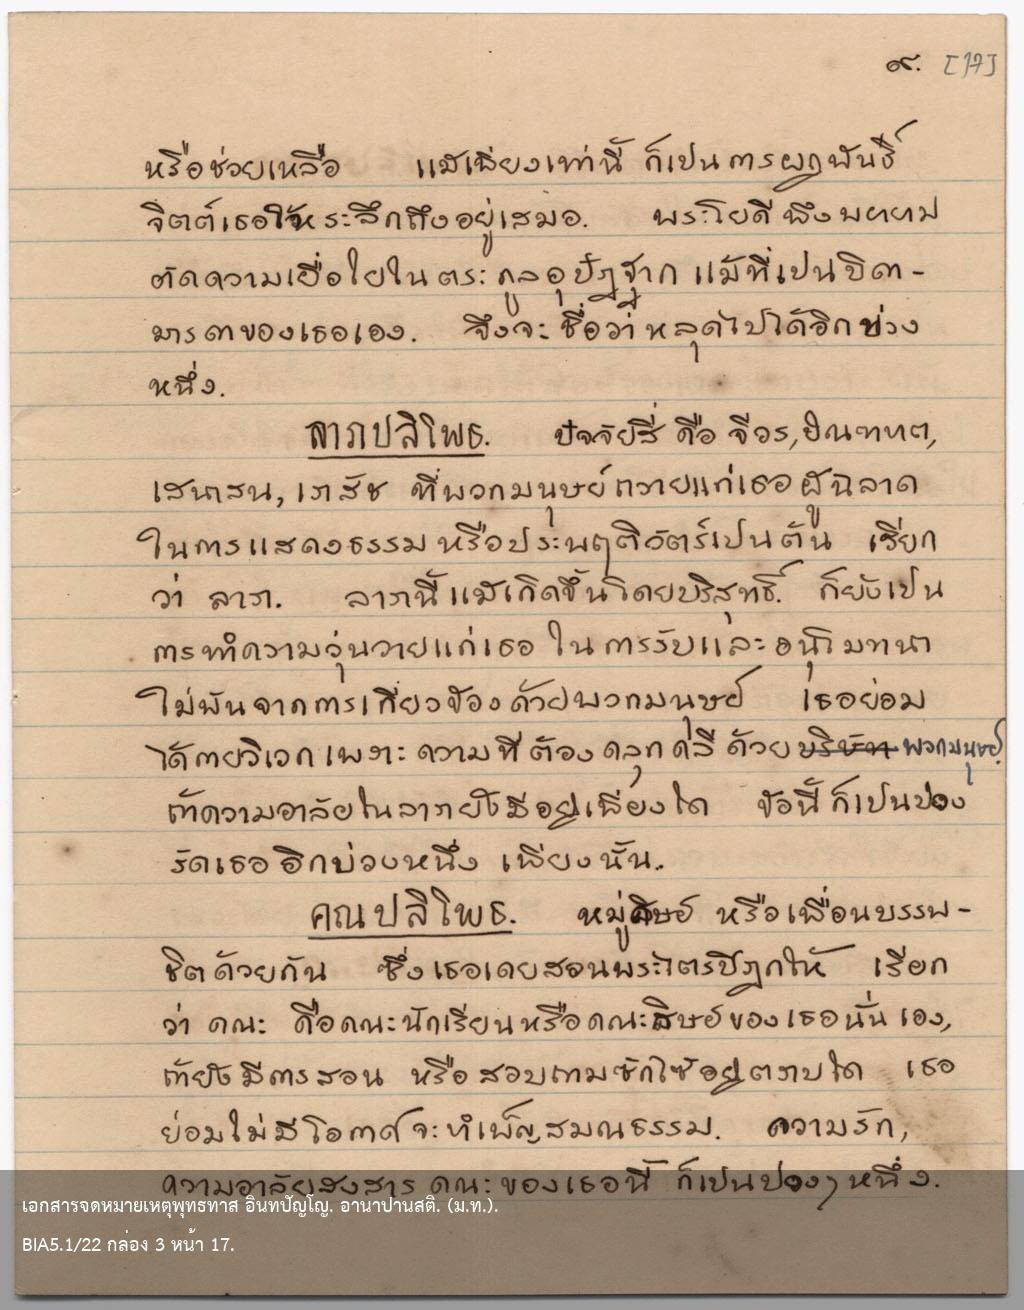 ๙. [17]
หรือช่วยเหลือ แม้เพียงเท่านี้ ก็เป็นการผูกพันธ์
จิตต์เธอให้ระลึกถึงอยู่เสมอ. พระโยคีพึงพยายาม
ตัดความเยื่อใยในตระกูลอุปัฏฐาก แม้ที่เป็นบิดา-
มารดาของเธอเอง. จึงจะชื่อว่าหลุดไปได้อีกบ่วง
หนึ่ง.
ลาภปลิโพธ. ปัจจัยสี่ คือ จีวร, บิณฑบาต,
เสนาสน, เภสัช ที่พวกมนุษย์ถวายแก่เธอผู้ฉลาด
ในการแสดงธรรมหรือประพฤติวัตร์เป็นต้น เรียก
ว่า ลาภ. ลาภนี้แม้เกิดขึ้นโดยบริสุทธิ์. ก็ยังเป็น
การทำความวุ่นวายแก่เธอ ในการรับและอนุโมทนา
ไม่พ้นจากการเกี่ยวข้องด้วยพวกมนุษย์ เธอย่อม
ได้กายวิเวกเพราะความที่ต้องคลุกคลีด้วยบริษัทพวกมนุษย์.
ถ้าความอาลัยในลาภยังมีอยู่เพียงใด ข้อนี้ก็เป็นบ่วง
รัดเธออีกบ่วงหนึ่ง เพียงนั้น.
คณปลิโพธ. หมู่ศิษย์ หรือเพื่อนบรรพ-
ชิตด้วยกัน ซึ่งเธอเคยสอนพระไตรปิฎกให้ เรียก
ว่า คณะ คือคณะนักเรียนหรือคณะศิษย์ของเธอนั่นเอง,
ถ้ายังมีการสอน หรือสอบถามซักไซ้อยู่ตราบใด เธอ
ย่อมไม่มีโอกาศจะทำเพ็ญสมณธรรม. ความรัก,
ความอาลัยสงสาร คณะของเธอนี้ ก็เป็นบ่วงๆหนึ่ง.
เอกสารจดหมายเหตุพุทธทาส อินทปัญโญ. อานาปานสติ. (ม.ท.).
BIA5.1/22 กล่อง 3 หน้า 17.